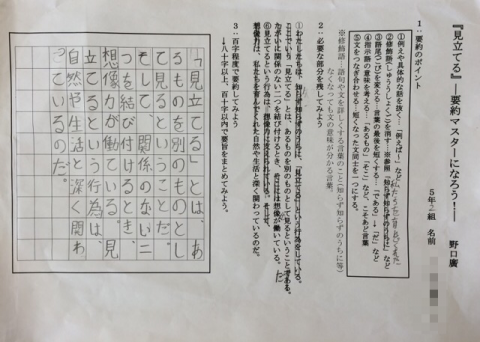 『見立てる』―要約マスターになろう!―
野口廣
5年2組 名前
1:要約のポイント
①例えや具体的な話を抜く…「例えば~」など
②修飾語(しゅうしょくご)を消す…※参照「知らず知らずのうちは」など
③語尾(ごび)を変える…言葉の最後を短くする…「である」→「だ」など
④指示語の意味を考える…「あるもの」「そこ」など、こそあど言葉
⑤文をつなぎ合わせる…短くなった文同士を一つにする。
※修飾語…語句や文を詳しくする言葉のこと(知らず知らずのうちに等)
なくなっても文の意味が分かる言葉。
2:必要な部分を残してみよう
①わたしたちは、知らず知らずのうちに、「見立てる」という行為をしている。
ここでいう「見立てる」とは、あるものを別のものとして見るということである。だ
たがいに関係のない二つを結び付けるとき、そこには想像力が働いている。
⑥見立てるという行為は、想像力に支えられている。そして、
想像力は、私たちを育んでくれた自然や生活と深く関わっているのだ。
3:百字程度で要約してみよう
→八十字以上、百字以内で要旨をまとめてみよう。
「見立てる」とは、あ
るものを別のものとし
て見るということだ。
そして、関係のない二
つを結び付けるとき、
想像力が働いている。見
立てるという行為は、
自然や生活と深く関わ
っているのだ。